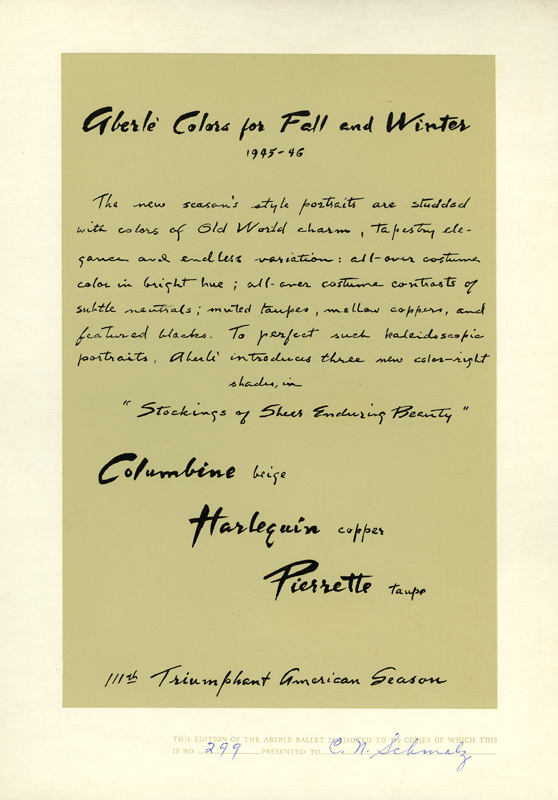 Aberlé Colors for Fall and Winter
1945-46
The new season's style portraits are studded
with colors of Old World charm, tapestry ele-
gance and endless variation: all-over costume
color in bright hue; all-over costume contrasts of
subtle neutrals; muted taupes, mellow coppers, and
featured blacks. To perfect such kaleidoscopic
portraits, Aberlé introduces three new color-right
shades, in
"Stockings of Sheer Enduring Beauty"
Columbine beige
Harlequin copper
Pierrette taupe
111th Triumphant American Season
THIS EDITION OF THE ABERLE BALLET IS LIMITED TO COPIES OF WHICH THIS
IS NO 299 PRESENTED TO C. N. Schmalz